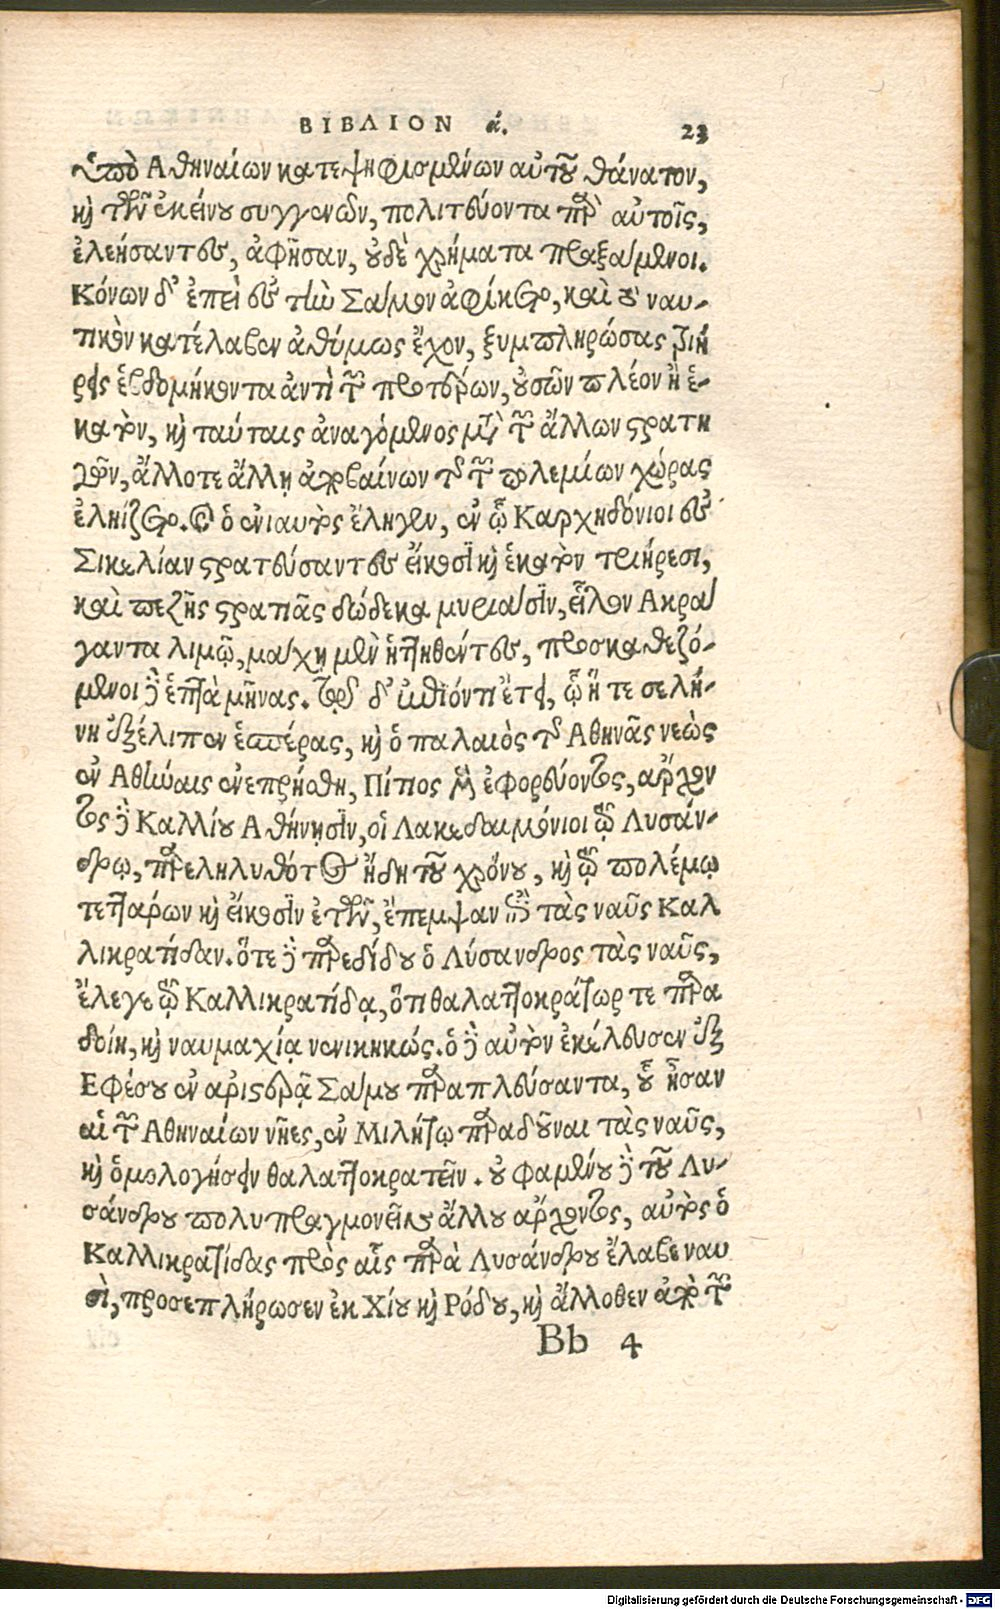 ΒΙΒΛΙΟΝ ά. 23
ὑπὸ Ἀθηναίων κατεψηφισμένων αὐτοῦ θάνατον,
καὶ τῶν ἐκείνου συγγενῶν, πολιτεύοντα παρ' αὐτοῖς,
ἐλεήσαντες, ἀφῆσαν, οὐδὲ χρήματα πραξάμενοι.
Κόνων δ' ἐπεὶ εἰς τὴν Σάμον ἀφίκετο, καὶ τὸ ναυ-
τικὸν κατέλαβεν ἀθύμως ἔχον, ξυμπληρώσας τριή
ρεις ἑβδομήκοντα ἀντὶ τῶν προτέρων, οὐσῶν πλέον ἢ ἑ-
κατὸν, καὶ ταύταις ἀναγόμενος μετὰ τῶν ἄλλων στρατη
γῶν, ἄλλοτε ἄλλῃ ἀποβαίνων τῆς τῶν πολεμίων χώρας
ἐληίζετο. καὶ ὁ ἐνιαυτὸς ἔληγεν, ἐν ᾧ Καρχηδόνιοι εἰς
Σικελίαν στρατεύσαντες εἴκοσι καὶ ἑκατὸν τριήρεσι,
καὶ πεζῆς στρατιᾶς δώδεκα μυριάσιν, εἷλον Ακρά
γαντα λιμῷ, μάχῃ μὲν ἡττηθέντες, προσκαθεζό-
μενοι δὲ ἑπτὰ μῆνας. τῷ δ' ἐπιόντι ἔτει, ᾧ ἥ τε σελή-
νη ἐξέλιπεν ἑσπέρας, καὶ ὁ παλαιὸς τῆς Αθηνᾶς νεὼς
ἐν Αθήναις ἐνεπρήσθη, Πίτιος μὲν ἐφορεύοντος, ἄρχον
τος δὲ Καλλίου Αθήνησιν, οἱ Λακεδαιμόνιοι τῷ Λυσάν-
δρῳ, παρεληλυθότος ἤδη τοῦ χρόνου, καὶ τῷ πολέμῳ
τεττάρων καὶ εἴκοσιν ἐτῶν, ἔπεμψαν ἐπὶ τὰς ναῦς Καλ
λικρατίδαν. ὅτε δὲ παρεδίδου ὁ Λύσανδρος τὰς ναῦς,
ἔλεγε τῷ Καλλικρατίδᾳ, ὅτι θαλαττοκράτωρ τε παρα
δοίη, καὶ ναυμαχίᾳ νενικηκώς. ὁ δὲ αὐτὸν ἐκέλευσεν ἐξ
Εφέσου ἐν ἀριστερᾷ Σάμου παραπλεύσαντα, οὗ ἦσαν
αἱ τῶν Αθηναίων νῆες, ἐν Μιλήτῳ παραδοῦναι τὰς ναῦς,
καὶ ὁμολογήσειν θαλαττοκρατεῖν. οὐ φαμένου δὲ τοῦ Λυ-
σάνδρου πολυπραγμονεῖν ἄλλου ἄρχοντος, αὐτὸς ὁ
Καλλικρατίδας πρὸς αἷς παρὰ Λυσάνδρου ἔλαβε ναυ
σὶ, προσεπλήρωσεν ἐκ Χίου καὶ Ρόδου, καὶ ἄλλοθεν ἀπὸ τῶν
Bb 4
Digitalisierung gefördert durch die Deutsche Forschungsgemeinschaft - DFG